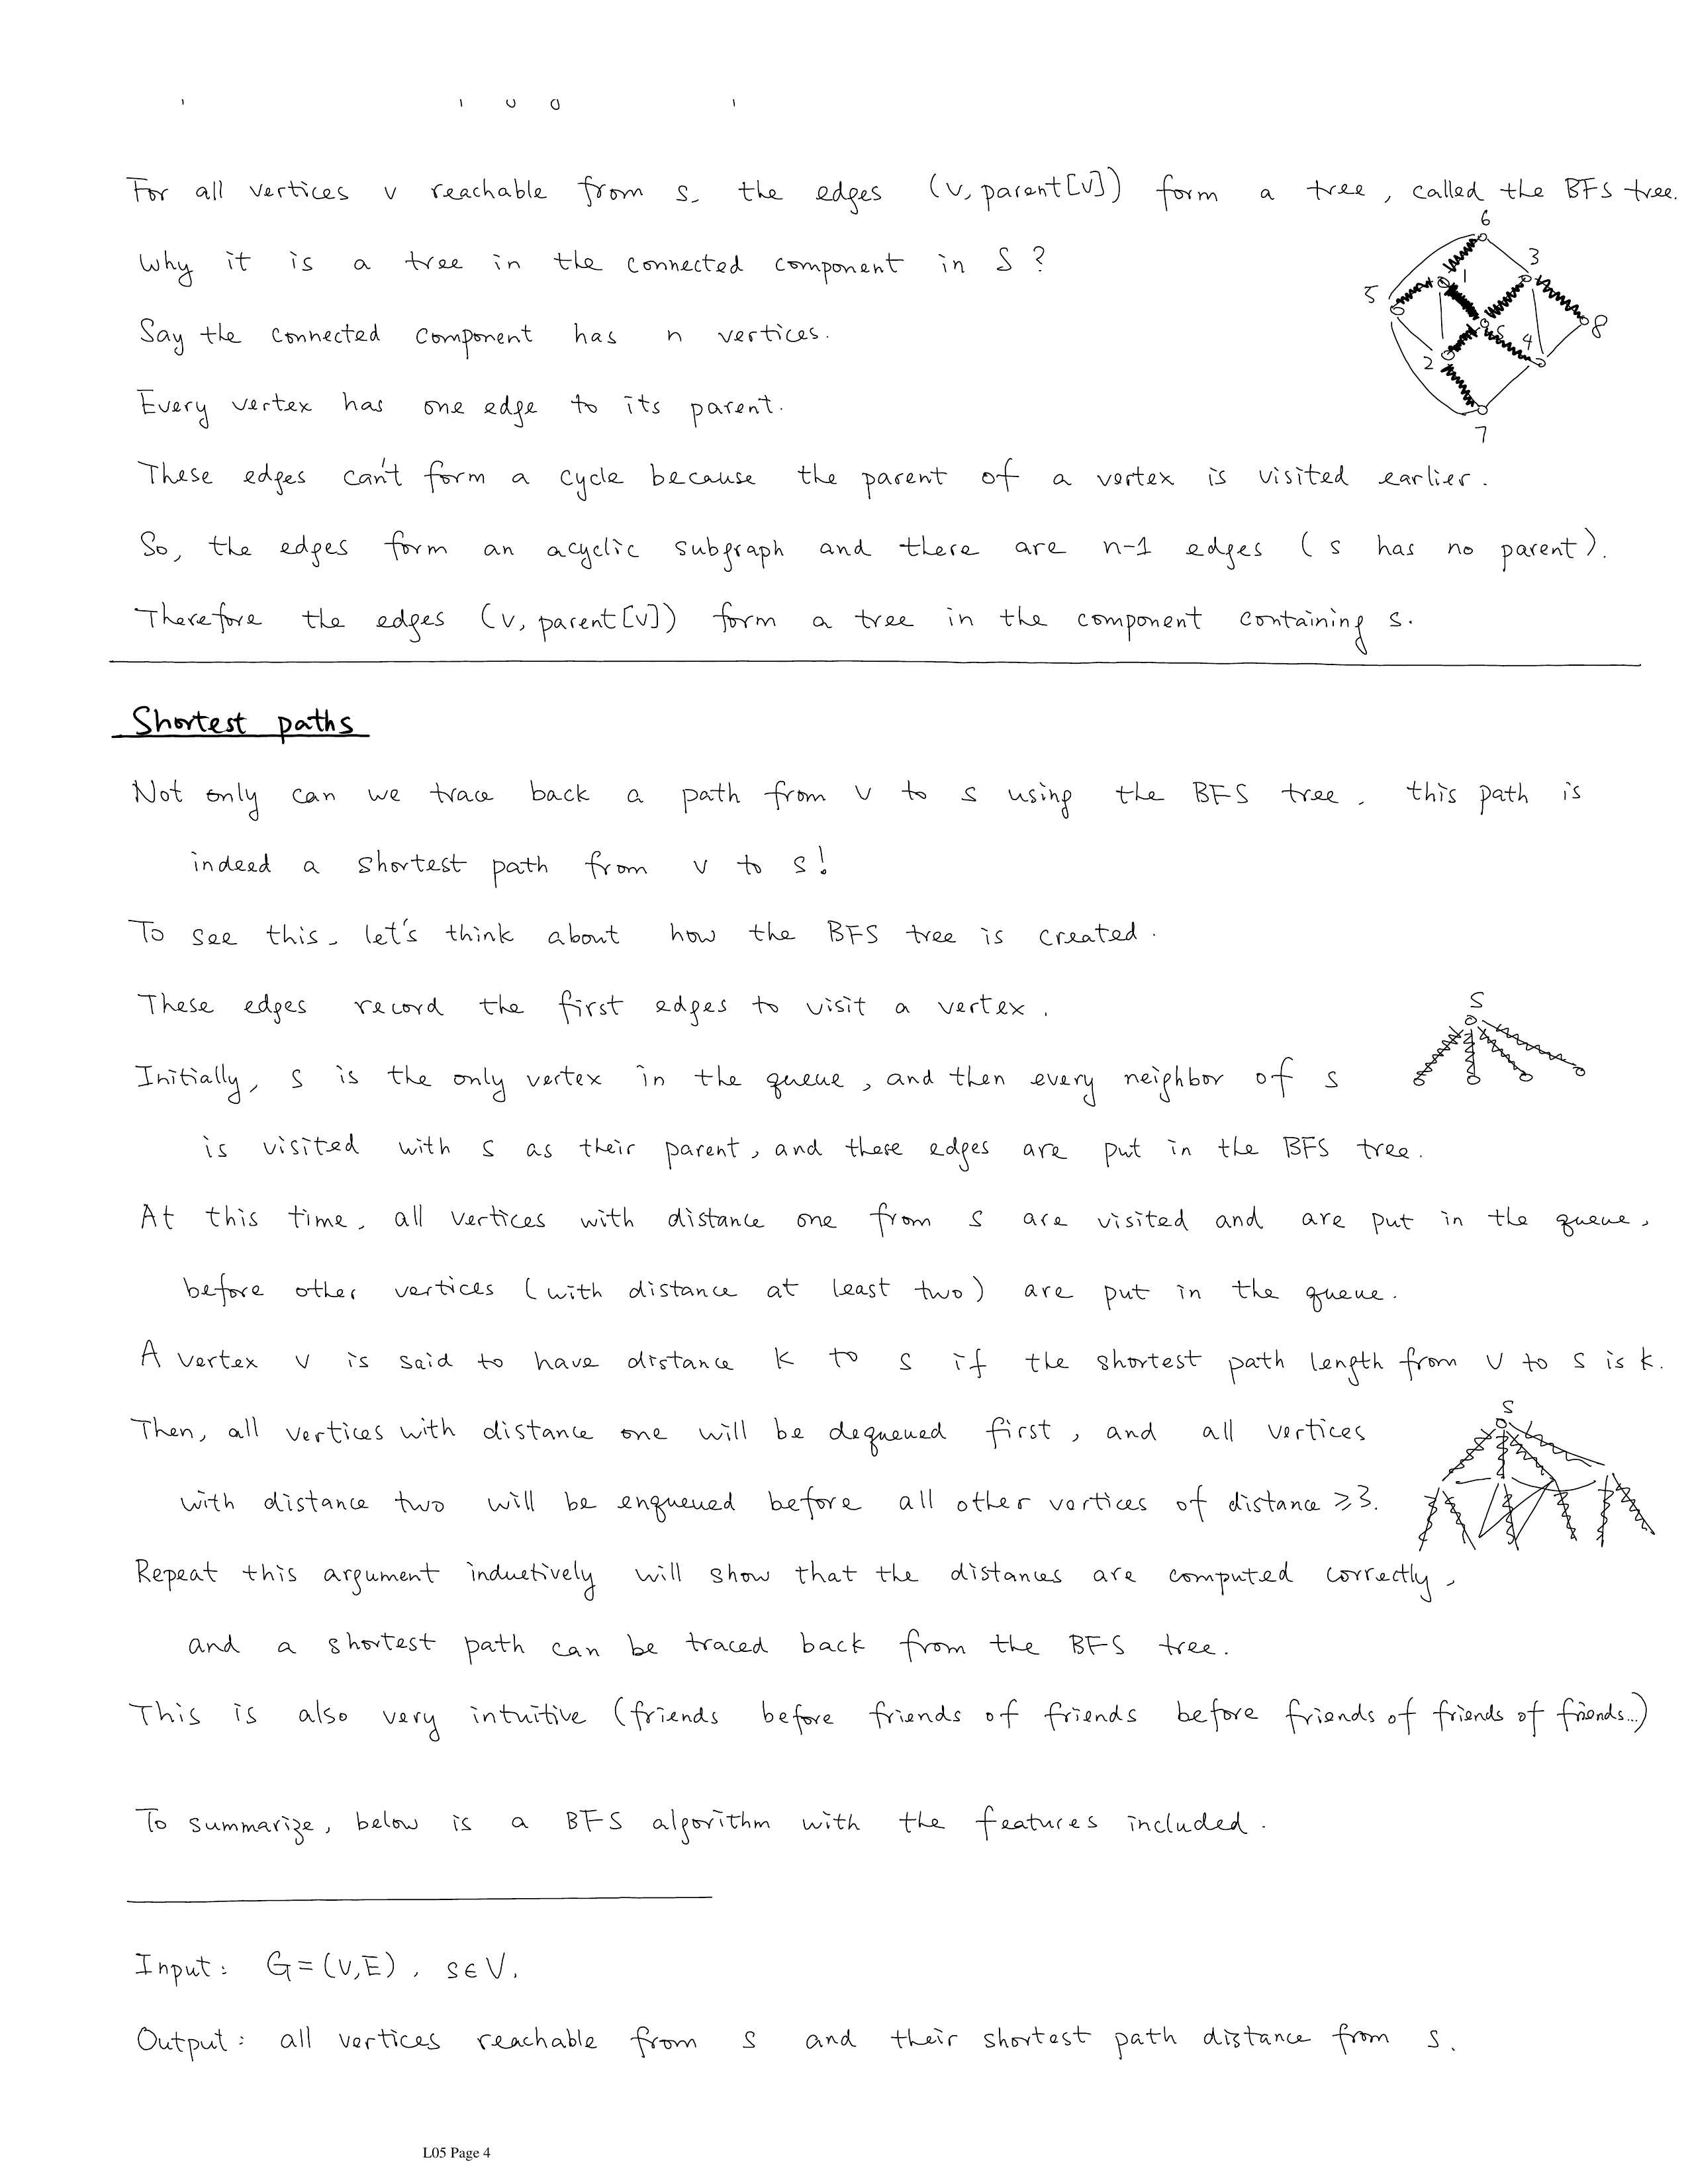 For all vertices v reachable from s, the edges (v, parent[v]) form a tree, called the BFS tree.
Why it is a tree in the connected component in S?
Say the connected component has n vertices.
Every vertex has one edge to its parent.
These edges can't form a cycle because the parent of a vertex is visited earlier.
So, the edges form an acyclic subgraph and there are n-1 edges (s has no parent).
Therefore the edges (v, parent[v]) form a tree in the component containing s.
6
3
1
5
8
s
4
2
7
Shortest paths
Not only can we trace back a path from v to s using the BFS tree, this path is
indeed a shortest path from v to s!
To see this, let's think about how the BFS tree is created.
These edges record the first edges to visit a vertex.
S
Initially, s is the only vertex in the queue, and then every neighbor of s
is visited with s as their parent, and these edges are put in the BFS tree.
At this time, all vertices with distance one from s are visited and are put in the queue,
before other vertices (with distance at least two) are put in the queue.
A vertex v is said to have distance k to s if the shortest path length from v to s is k.
S
Then, all vertices with distance one will be dequeued first, and all vertices
with distance two will be enqueued before all other vertices of distance ≥3.
Repeat this argument inductively will show that the distances are computed correctly,
and a shortest path can be traced back from the BFS tree.
This is also very intuitive (friends before friends of friends before friends of friends of friends...)
To summarize, below is a BFS algorithm with the features included.
Input: G=(V,E), s∈V.
Output: all vertices reachable from s and their shortest path distance from s.
L05 Page 4